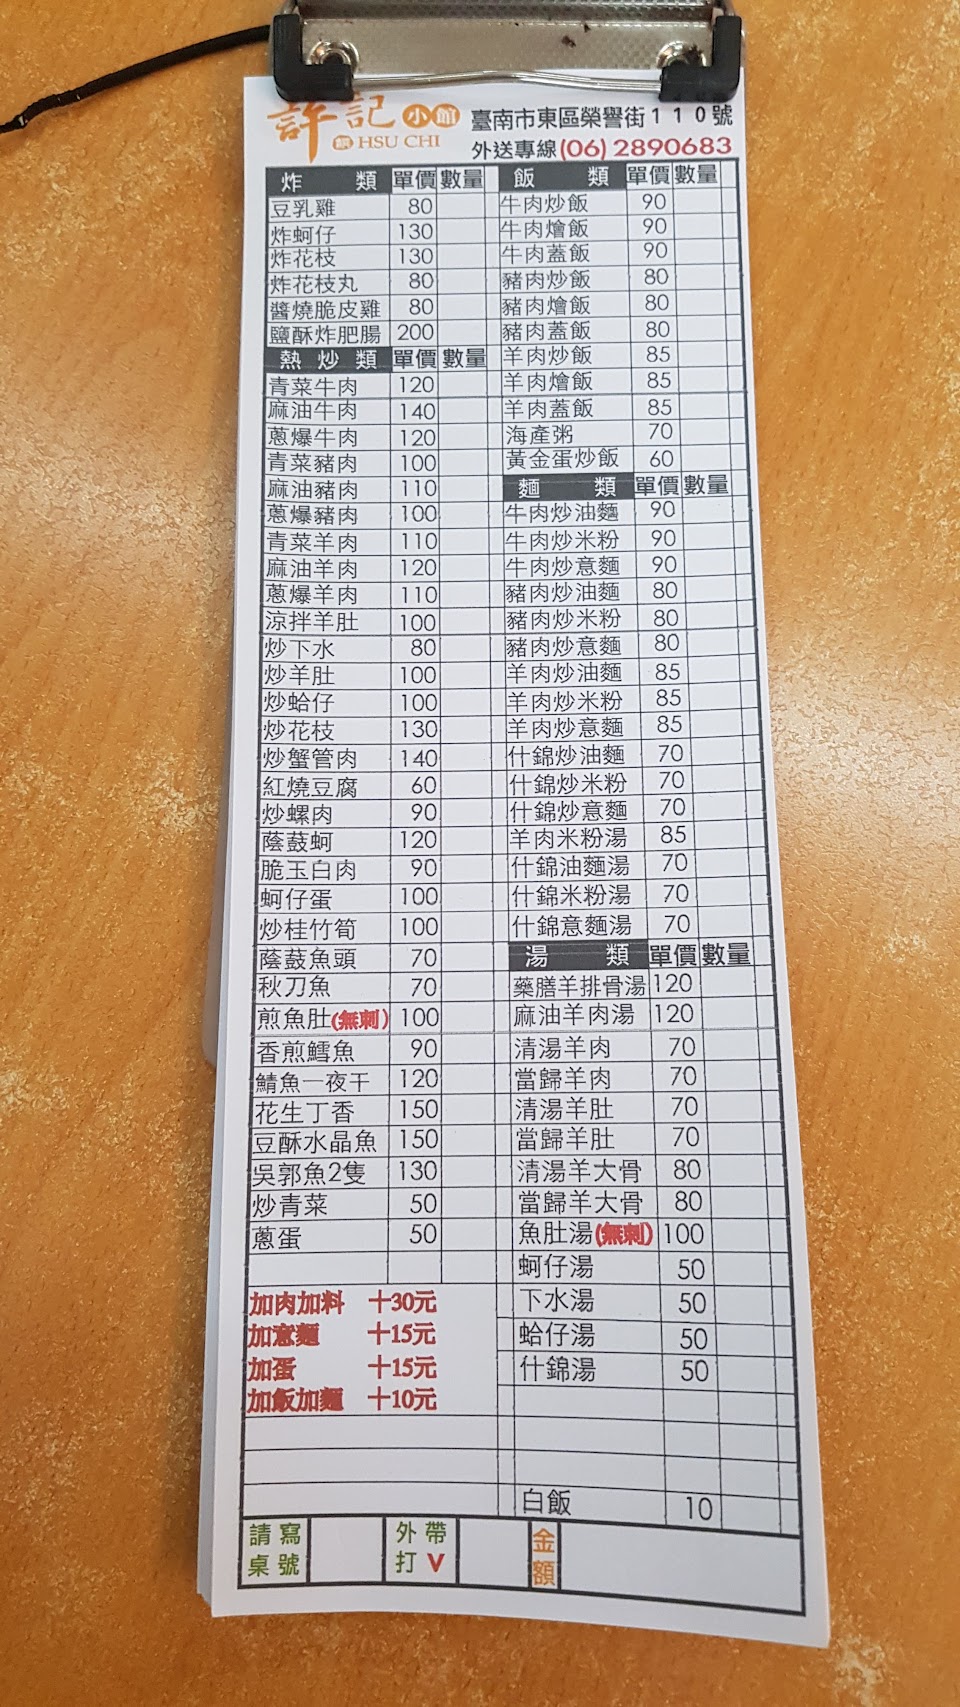 許記小館
HSU CHI
臺南市東區榮譽街110號
外送專線(06) 2890683
炸類 單價 數量
豆乳雞 80
炸蚵仔 130
炸花枝 130
炸花枝丸 80
醬燒脆皮雞 80
鹽酥炸肥腸 200
熱炒類 單價 數量
青菜牛肉 120
麻油牛肉 140
蔥爆牛肉 120
青菜豬肉 100
麻油豬肉 110
蔥爆豬肉 100
青菜羊肉 110
麻油羊肉 120
蔥爆羊肉 110
涼拌羊肚 100
炒下水 80
炒羊肚 100
炒蛤仔 100
炒花枝 130
炒蟹管肉 140
紅燒豆腐 60
炒螺肉 90
蔭鼓蚵 120
脆玉白肉 90
蚵仔蛋 100
炒桂竹筍 100
蔭鼓魚頭 70
秋刀魚 70
煎魚肚(無刺) 100
香煎鱈魚 90
鯖魚一夜干 120
花生丁香 150
豆酥水晶魚 150
吳郭魚2隻 130
炒青菜 50
蔥蛋 50
加肉加料 十30元
加意麵 十15元
加蛋 十15元
加飯加麵 十10元
飯類 單價 數量
牛肉炒飯 90
牛肉燴飯 90
牛肉蓋飯 90
豬肉炒飯 80
豬肉燴飯 80
豬肉蓋飯 80
羊肉炒飯 85
羊肉燴飯 85
羊肉蓋飯 85
海產粥 70
黃金蛋炒飯 60
麵類 單價 數量
牛肉炒油麵 90
牛肉炒米粉 90
牛肉炒意麵 90
豬肉炒油麵 80
豬肉炒米粉 80
豬肉炒意麵 80
羊肉炒油麵 85
羊肉炒米粉 85
羊肉炒意麵 85
什錦炒油麵 70
什錦炒米粉 70
什錦炒意麵 70
羊肉米粉湯 85
什錦油麵湯 70
什錦米粉湯 70
什錦意麵湯 70
湯類 單價 數量
藥膳羊排骨湯 120
麻油羊肉湯 120
清湯羊肉 70
當歸羊肉 70
清湯羊肚 70
當歸羊肚 70
清湯羊大骨 80
當歸羊大骨 80
魚肚湯(無刺) 100
蚵仔湯 50
下水湯 50
蛤仔湯 50
什錦湯 50
白飯 10
請寫桌號
外帶打V
金額